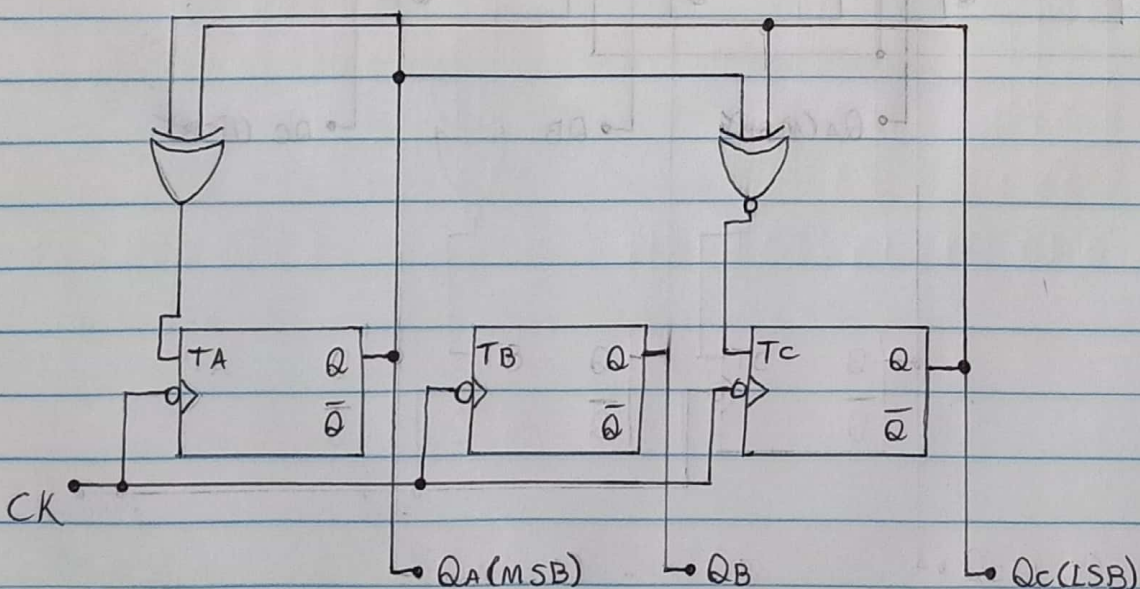 TA Q
Q̅
TB Q
Q̅
TC Q
Q̅
CK
QA(MSB)
QB
QC(LSB)